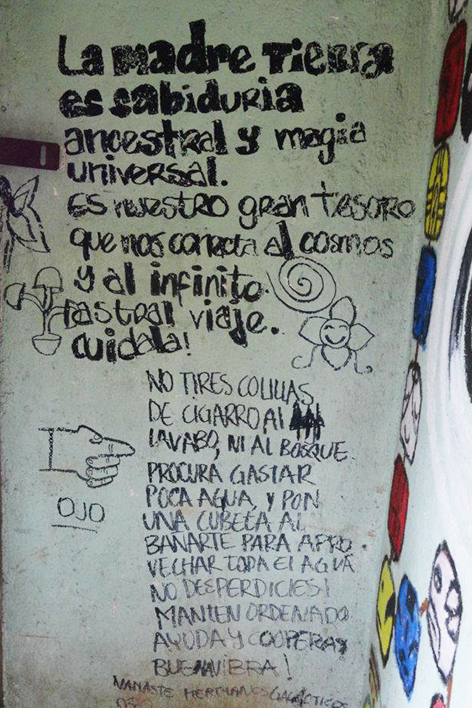 La madre Tierra
es sabiduria
ancestral y magia
universal.
Es nuestro gran tesoro
que nos conecta al cosmos
y al infinito.
astral viaje.
cuidala!
NO TIRES COLILLAS
DE CIGARRO AL
LAVABO, NI AL BOSQUE.
PROCURA GASTAR
POCA AGUA, Y PON
UNA CUBETA AL
BAÑARTE PARA APRO-
VECHAR TODA El AGUA
NO DESPERDICIES!
MANTEN ORDENADO
AYUDA Y COOPERA
BUENA VIBRA!
OJO
NAMASTE HERMANOS GALACTICOS